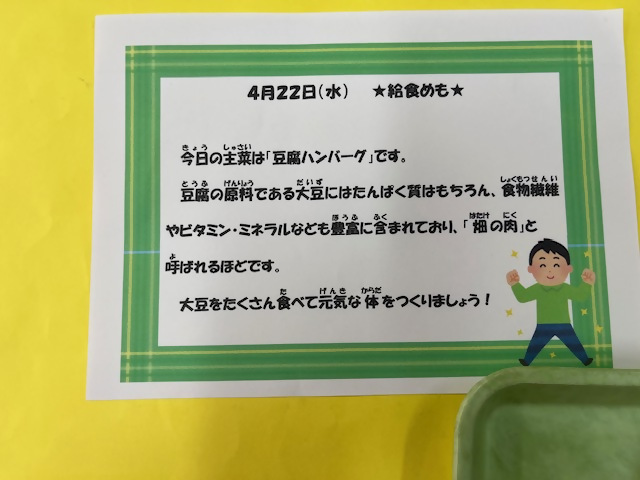 4月22日(水)　★給食めも★
今日の主菜は「豆腐ハンバーグ」です。
豆腐の原料である大豆にはたんぱく質はもちろん、食物繊維
やビタミン・ミネラルなども豊富に含まれており、「畑の肉」と
呼ばれるほどです。
大豆をたくさん食べて元気な体をつくりましょう!